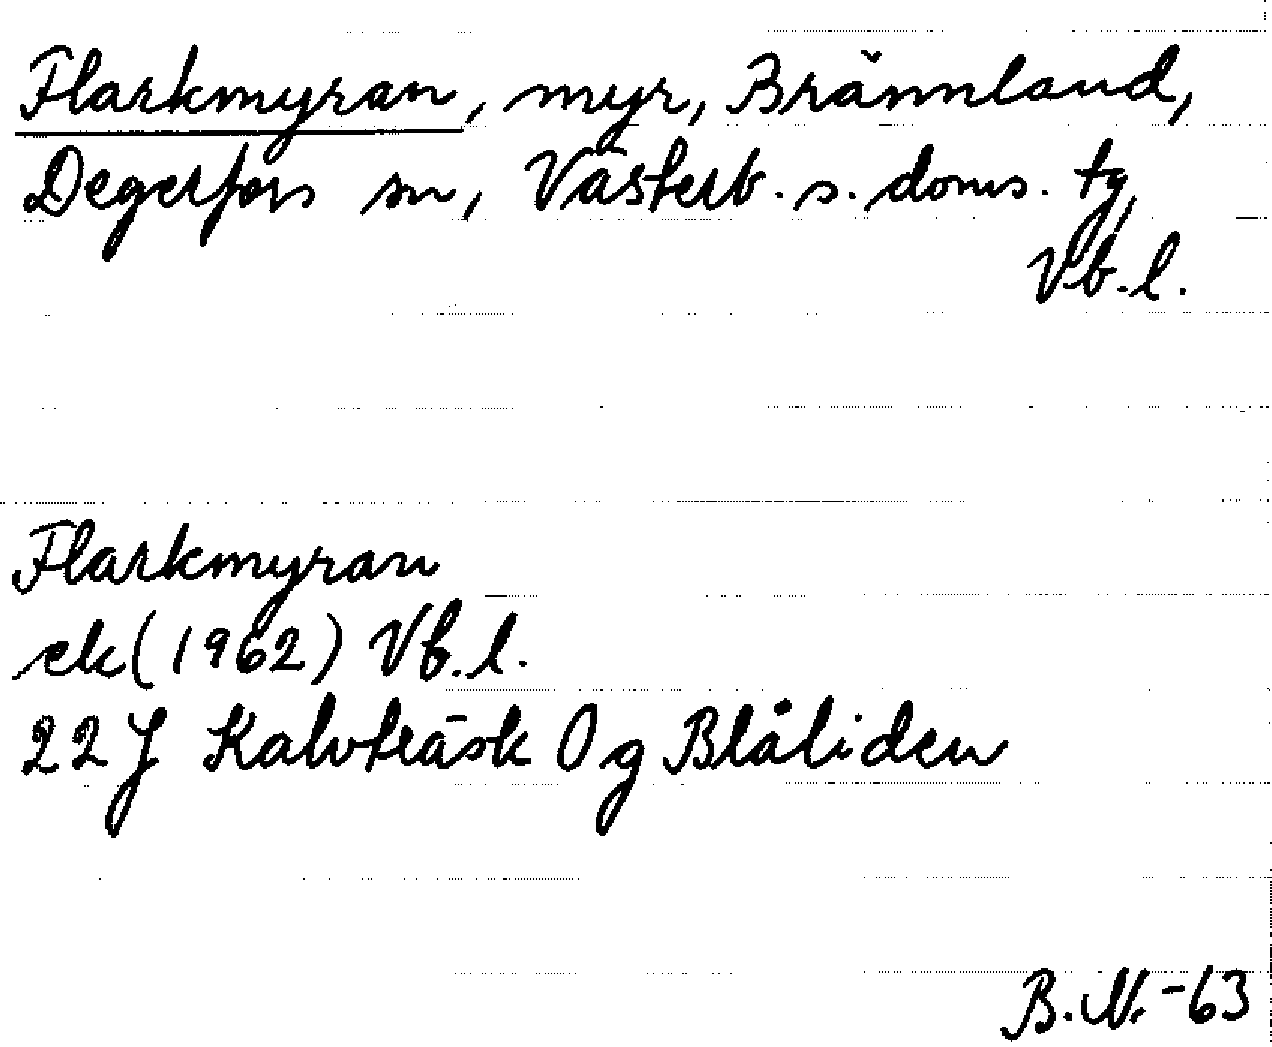 Flarkmyran, myr, Brännland,
Degerfors sn, Västerb. s. doms. tg,
Vb. l.
Flarkmyran
ek (1962) Vb. l.
22 J Kalvträsk 0 g Blåliden
B. N. -63